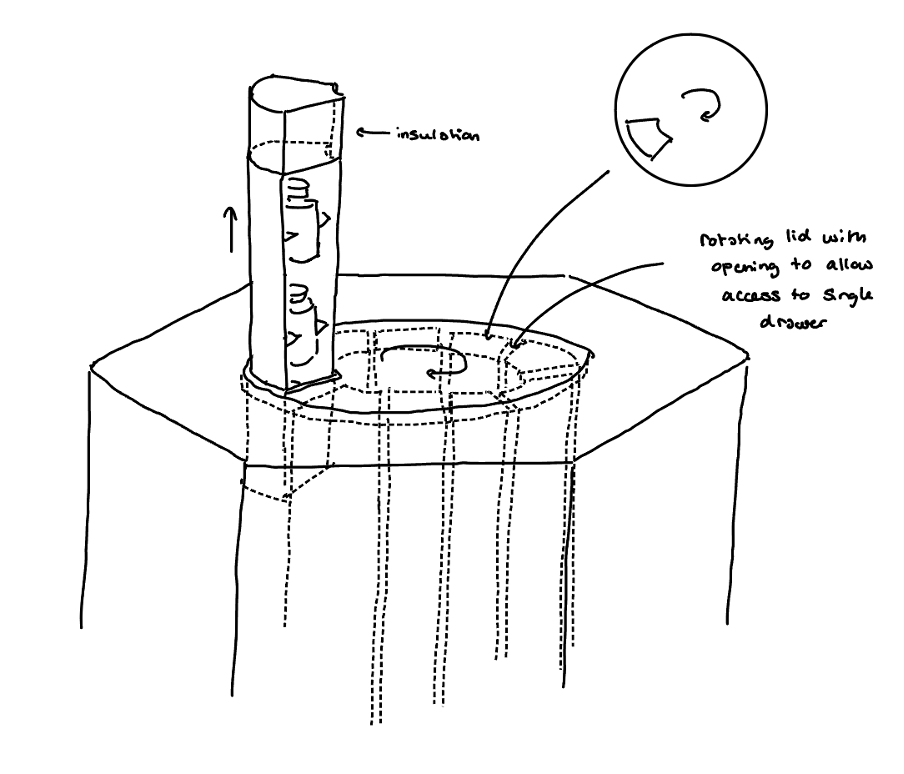 insulation
rotating lid with
opening to allow
access to single
drawer